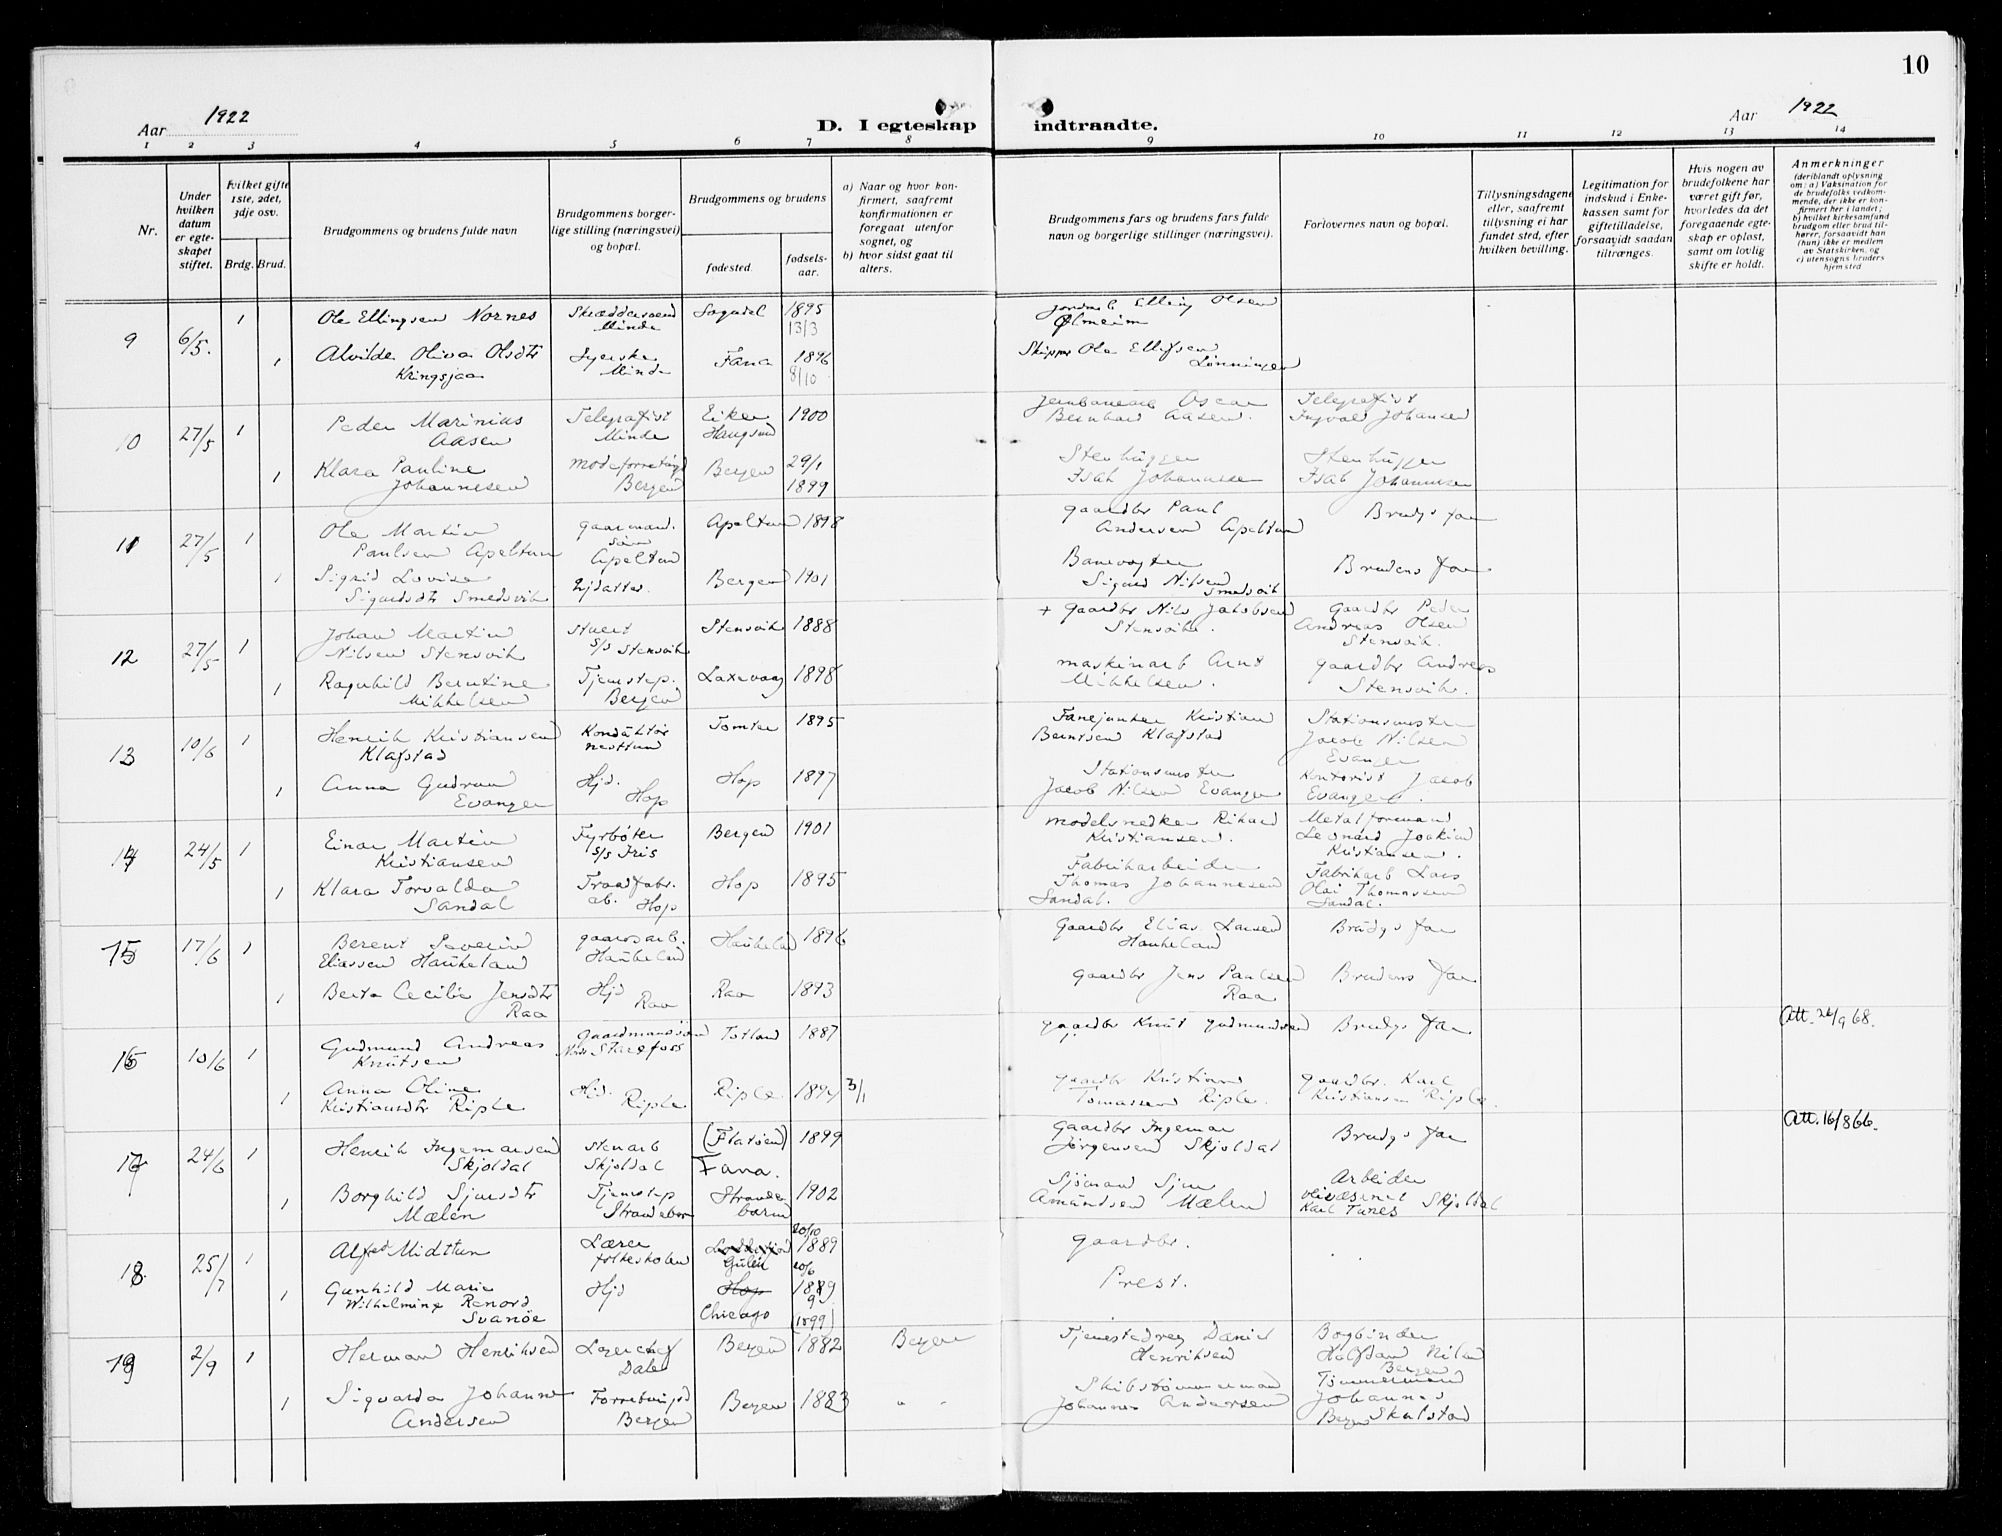 10
Aar 1922
D. I egteskap indtraadte.
Aar 1922
1 2 3 4 5 6 7 8 9 10 11 12 13 14
Nr.
Under hvilken datum er egteskapet stiftet.
Hvilket gifte 1ste, 2det, 3dje osv.
Brdg. Brud.
Brudgommens og brudens fulde navn
Brudgommens borgerlige stilling (næringsvei) og bopæl.
Brudgommens og brudens
fødested. fødselsaar.
a) Naar og hvor konfirmert, saafremt konfirmationen er foregaat utenfor sognet, og
b) hvor sidst gaat til alters.
Brudgommens fars og brudens fars fulde navn og borgerlige stillinger (næringsvei).
Forlovernes navn og bopæl.
Tillysningsdagene eller, saafremt tillysning ei har fundet sted, efter hvilken bevilling.
Legitimation for indskud i Enkekassen samt for giftetilladelse, forsaavidt saadan tiltrænges.
Hvis nogen av brudefolkene har været gift før, hvorledes da det foregaaende egteskap er opløst, samt om lovlig skifte er holdt.
Anmerkninger
(deriblandt oplysning om: a) Vaksination for de brudefolks vedkommende, der ikke er konfirmert her i landet; b) hvilket kirkesamfund brudgom eller brud tilhører, forsaavidt han (hun) ikke er medlem av Statskirken, og c) utensogns bruders hjemsted
9 6/5. 1 Ole Ellingsen Nornes Skræddersvend Minde Sogndal 1895 13/3 Elling Olsen Ølmeim
1 Alvilde Oliva Olsdtr Kringsjaa Syerske Minde Fana 1896 8/10 Skipper Ole Ellefsen Lønningen
10 27/5 1 Peder Marinius Aasen Telegrafist Minde Eiker Haugsund 1900 Jernbanearb Oscar Bernhard Aasen. Telegrafist Ingvald Johansen
1 Klara Pauline Johannesen Modeforretngd Bergen Bergen 29/1 1899 Stenhugger Isak Johannesen Stenhugger Isak Johannesen
11 27/5 1 Ole Martin Paulsen Apeltun gaardmand. søn Apeltun Apeltun 1898 gaardbr Paul Andersen Apeltun Brudgs far
1 Sigrid Lovise Sigurdsdtr Smedsvik Hjdatter. Bergen 1901 Banevogter Sigurd Nilsen Smedsvik Brudens far
12 27/5 1 Johan Martin Nilsen Stensvik Stuert S/S Stensvik Stensvik 1888 + gaardbr Nils Jakobsen Stensvik. Gaardbr Peder Andreas Olsen Stensvik
1 Ragnhild Berntine Mikkelsen Tjenstep. Bergen Laxevaag 1898 maskinarb Arnt Mikkelsen. gaardbr Andreas Stensvik.
13 10/6 1 Henrik Kristiansen Klafstad Konduktør nesttun Tomter 1895 Fanejunker Kristian Berntsen Klafstad Stationsmester Jacob Nilsen Evanger
1 Anna Gudrun Evanger Hjd. Hop Hop 1897 Stationsmester Jacob Nilsen Evanger Kontorist Jacob Evanger.
14 24/5 1 Einar Martin Kristiansen Fyrbøter S/S Iris Bergen 1901 modelsnedker Rikard Kristiansen. Metalformand Leonard Joakim Kristiansen.
1 Klara Torvalda Sandal Traadfabr. ab. Hop Hop 1895 Fabrikarbeider Thomas Johannesen Sandal. Fabrikarb Lars Olai Thomassen Sandal.
15 17/6 1 Berent Severin Eliassen Haukeland gaardsarb. Haukeland Haukeland 1896 Gaardbr Elias Larsen Haukeland Brudgs far
1 Berta Cecilie Jensdtr Raa Hjd Raa Raa 1893 gaardbr Jens Paulsen Raa Brudens far
16 10/6 1 Gudmund Andreas Knutsen gaardmandssøn Nordr Starefoss Totland 1887 gaardbr Knut Gudmundsen Brudgs far Att. 26/9 68.
1 Anna Oline Kristiansdtr Riple Hjd. Riple Riple 1894 3/1 gaardbr Kristian Tomassen Riple. gaardbr. Karl Kristiansen Riple.
17 24/6 1 Henrik Ingemarsen Skjoldal Stenarb Skjoldal (Flatøen) Fana. 1899 Gaardbr Ingemar Jørgensen Skjoldal Brudgs far Att. 16/8 66.
1 Borghild Sjursdtr Mælen Tjenstep Strandebarm Strandebarm 1902 Sjømand Sjur Amundsen Mælen Arbeider veivæsenet Karl Tunes Skjoldal
18 25/7 1 Alfred Midttun Lærer folkeskolen Gulen 20/10 1889 gaardbr.
1 Gunhild Marie Wilhelmine Renord Svanøe Hjd Hop Chicago 20/6 1889 (1899) Prest.
19 2/9 1 Herman Henriksen Lagerchef Dale Bergen 1882 Bergen Tjenestedreng Daniel Henriksen Bogbinder Halfdan Bergen
1 Sigvarda Johanne Andersen Forretningsd Bergen Bergen 1883 " " Skibstømmermand Johannes Andersen Tømmermand Johannes Skulstad Bergen